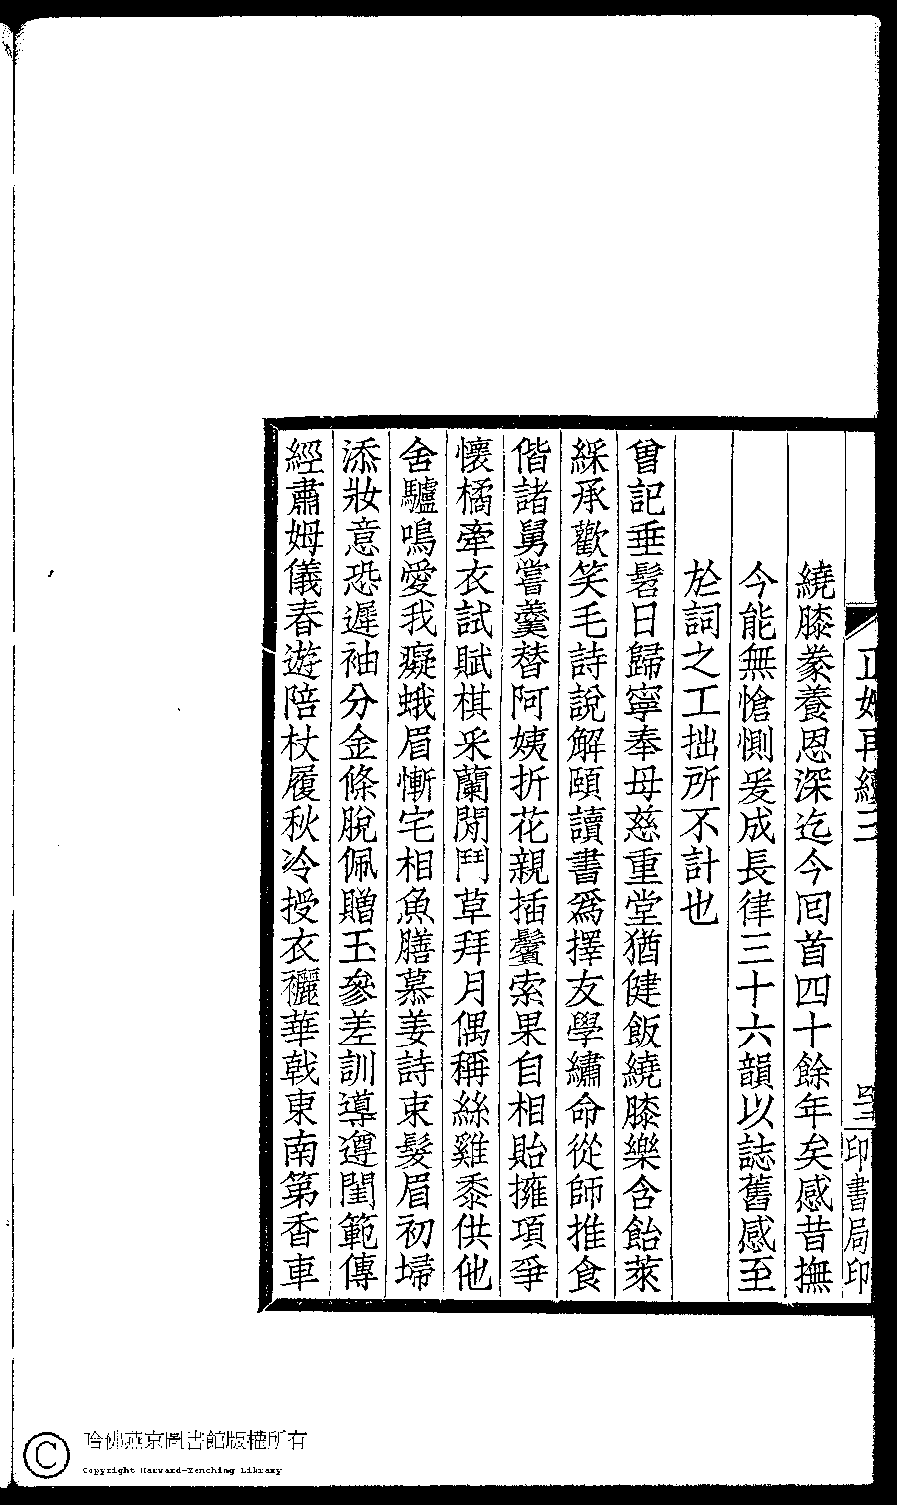 正始再續三
印書局印
繞膝豢養恩深迄今回首四十餘年矣感昔撫
今能無愴惻爰成長律三十六韻以誌舊感至
於詞之工拙所不計也
曾記垂髫日歸寧奉母慈重堂猶健飯繞膝樂含飴萊
綵承歡笑毛詩說解頤讀書爲擇友學繡命從師推食
偕諸舅嘗羹替阿姨折花親插鬢索果自相貽擁項爭
懷橘牽衣試賦棋采蘭閒鬥草拜月偶稱絲雞黍供他
舍驢鳴愛我癡蛾眉慚宅相魚膳慕姜詩束髮眉初埽
添妝意恐遲袖分金條脫佩贈玉參差訓導遵閨範傳
經肅姆儀春遊陪杖履秋冷授衣襹華戟東南第香車
哈佛燕京圖書館版權所有
Copyright Harvard-Yenching Library